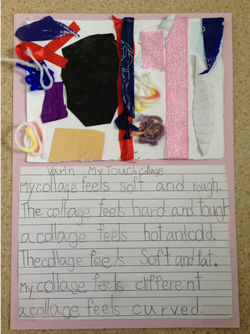 Varin My Touch collage
My collage feels soft and rough.
The collage feels hard and tough
a collage feels hot and cold.
The collage feels Soft and fat.
My collage feels different
a collage feels curved.